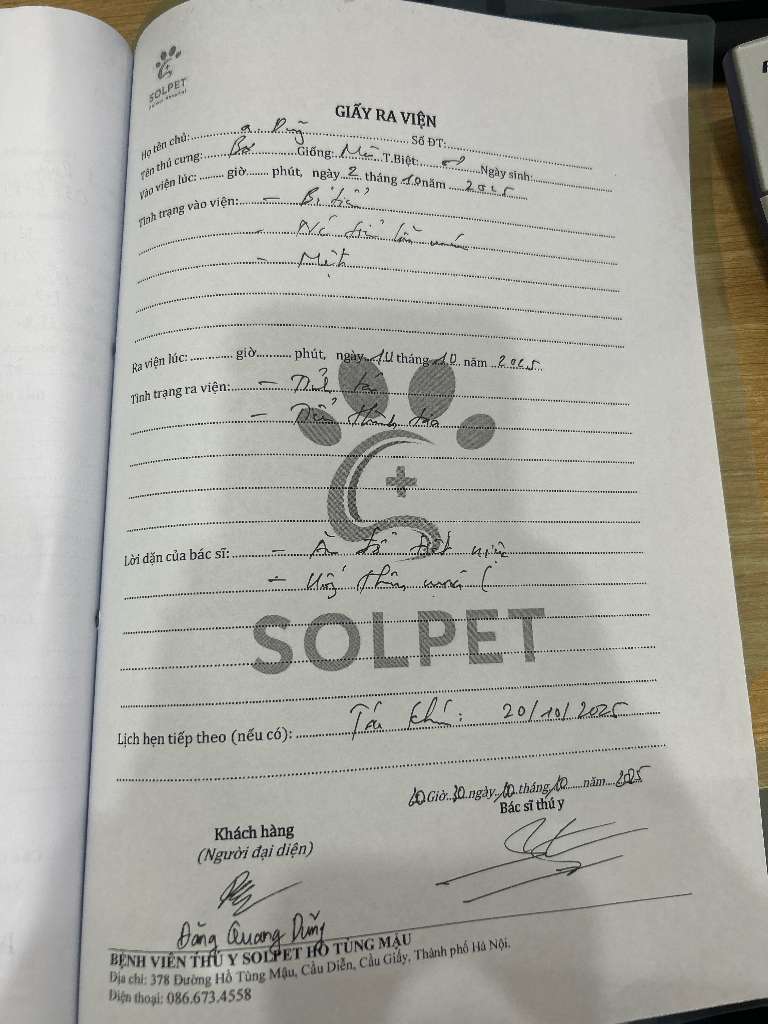 SOLPET
GIẤY RA VIỆN
Họ tên chủ: a. Dũng Số ĐT:
Tên thú cưng: Giống: Mèo T.Biệt: ♂ Ngày sinh:
Vào viện lúc: giờ phút, ngày 2 tháng 10 năm 2025
Tình trạng vào viện: - Bí tiểu
-
- Mệt
Ra viện lúc: giờ phút, ngày 10 tháng 10 năm 2025
Tình trạng ra viện: -
-
Lời dặn của bác sĩ: -
- Uống
SOLPET
Lịch hẹn tiếp theo (nếu có): Tái khám: 20/10/2025
10 Giờ 30 ngày 10 tháng 10 năm 2025
Bác sĩ thú y
Khách hàng
(Người đại diện)
Đặng Quang Dũng
BỆNH VIỆN THÚ Y SOLPET HỒ TÙNG MẬU
Địa chỉ: 378 Đường Hồ Tùng Mậu, Cầu Diễn, Cầu Giấy, Thành phố Hà Nội.
Điện thoại: 086.673.4558